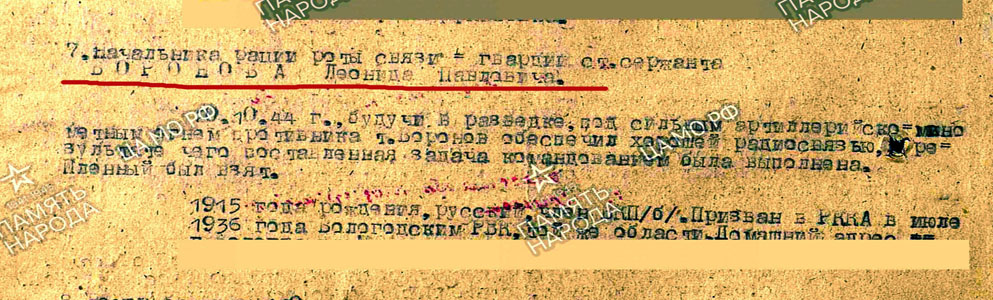 7. Начальника рации роты связи = гвардии ст.сержанта
ВОРОНОВА Леонида Павловича.
.10.44 г., будучи в разведке, под сильным артиллерийско=мино
метным огнем противника т.Воронов обеспечил хорошей радиосвязью, в ре=
зультате чего поставленная задача командованием была выполнена.
Пленный был взят.
1915 года рождения, русский, член ВКП/б/. Призван в РККА в июле
1936 года Вологодским РВК, той же области. Домашний адрес
ПАМЯТЬ НАРОДА
ЦАМО РФ
ЦАМО РФ
ПАМЯТЬ НАРОДА
ПАМЯТЬ НАРОДА